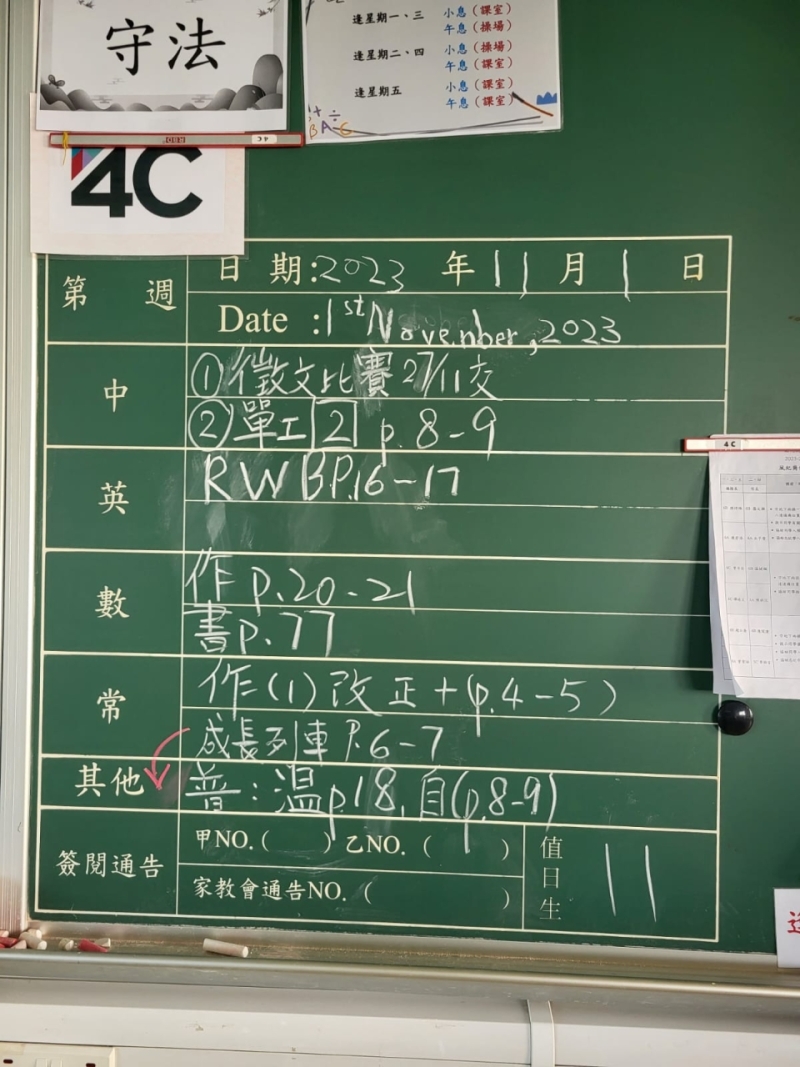 守法
逢星期一、三 小息(課室)
午息(操場)
逢星期二、四 小息(操場)
午息(課室)
逢星期五 小息(課室)
午息(課室)
4C
4C
第 週
日 期:2023 年 11 月 1 日
Date :1st November, 2023
中
① 徵文比賽 27/11交
② 單工 2 p.8-9
英
RWB P.16-17
數
作 p.20-21
書 p.77
常
作(1) 改正+(p.4-5)
成長列車 P.6-7
其他
普:温p.18,自(p.8-9)
簽閱通告
甲NO.( ) 乙NO.( )
家教會通告NO.( )
值日生
11
4C